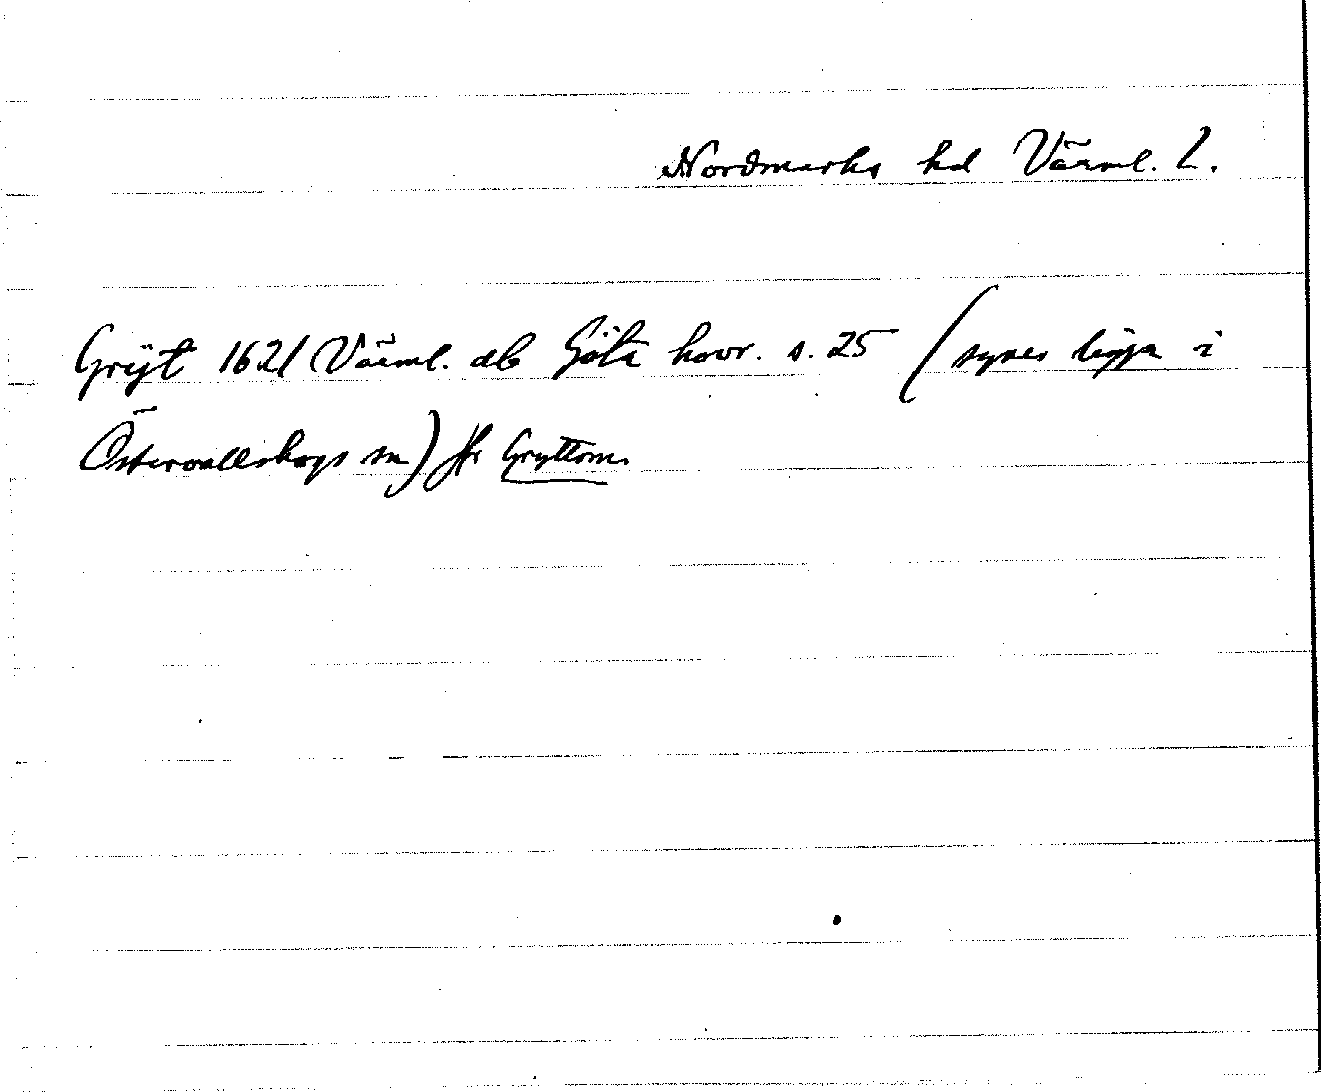 Nordmarks hd Värml. L.
Grÿt 1621 Värml. db Göta hovr. s. 25 (synes ligga i
Östervallskogs sn) jfr Gryttom